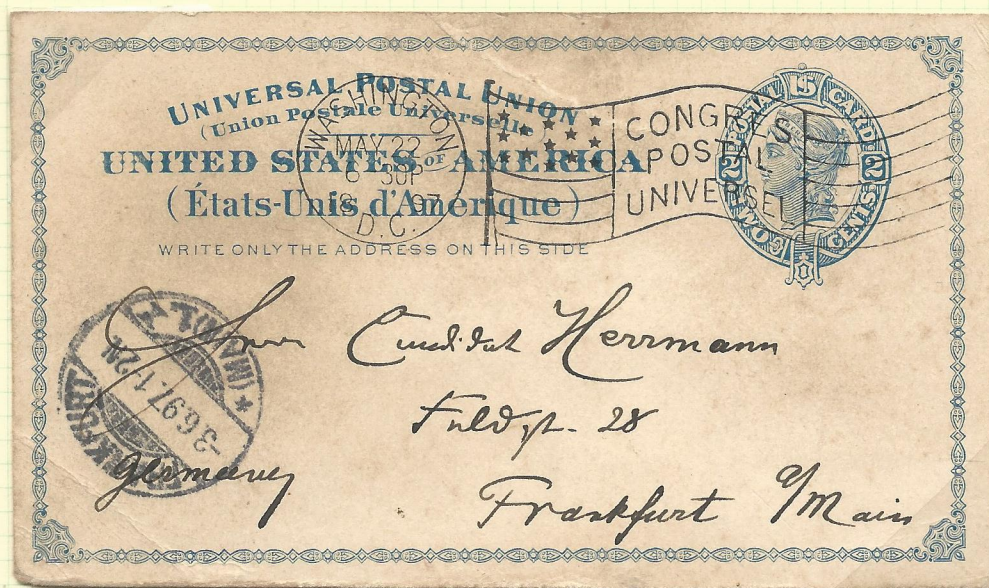 UNIVERSAL POSTAL UNION
(Union Postale Universelle)
UNITED STATES OF AMERICA
(États-Unis d'Amérique)
WRITE ONLY THE ADDRESS ON THIS SIDE
WASHINGTON
MAY 22
6 30P
97
D.C.
CONGRES
POSTAL
UNIVERSEL
POSTAL CARD
2 2
TWO CENTS
FRANKFURT (MAIN)
3.6.97. 1-2N
Herrn Candidat Herrmann
Fuldstr. 28
Germany
Frankfurt a/Main